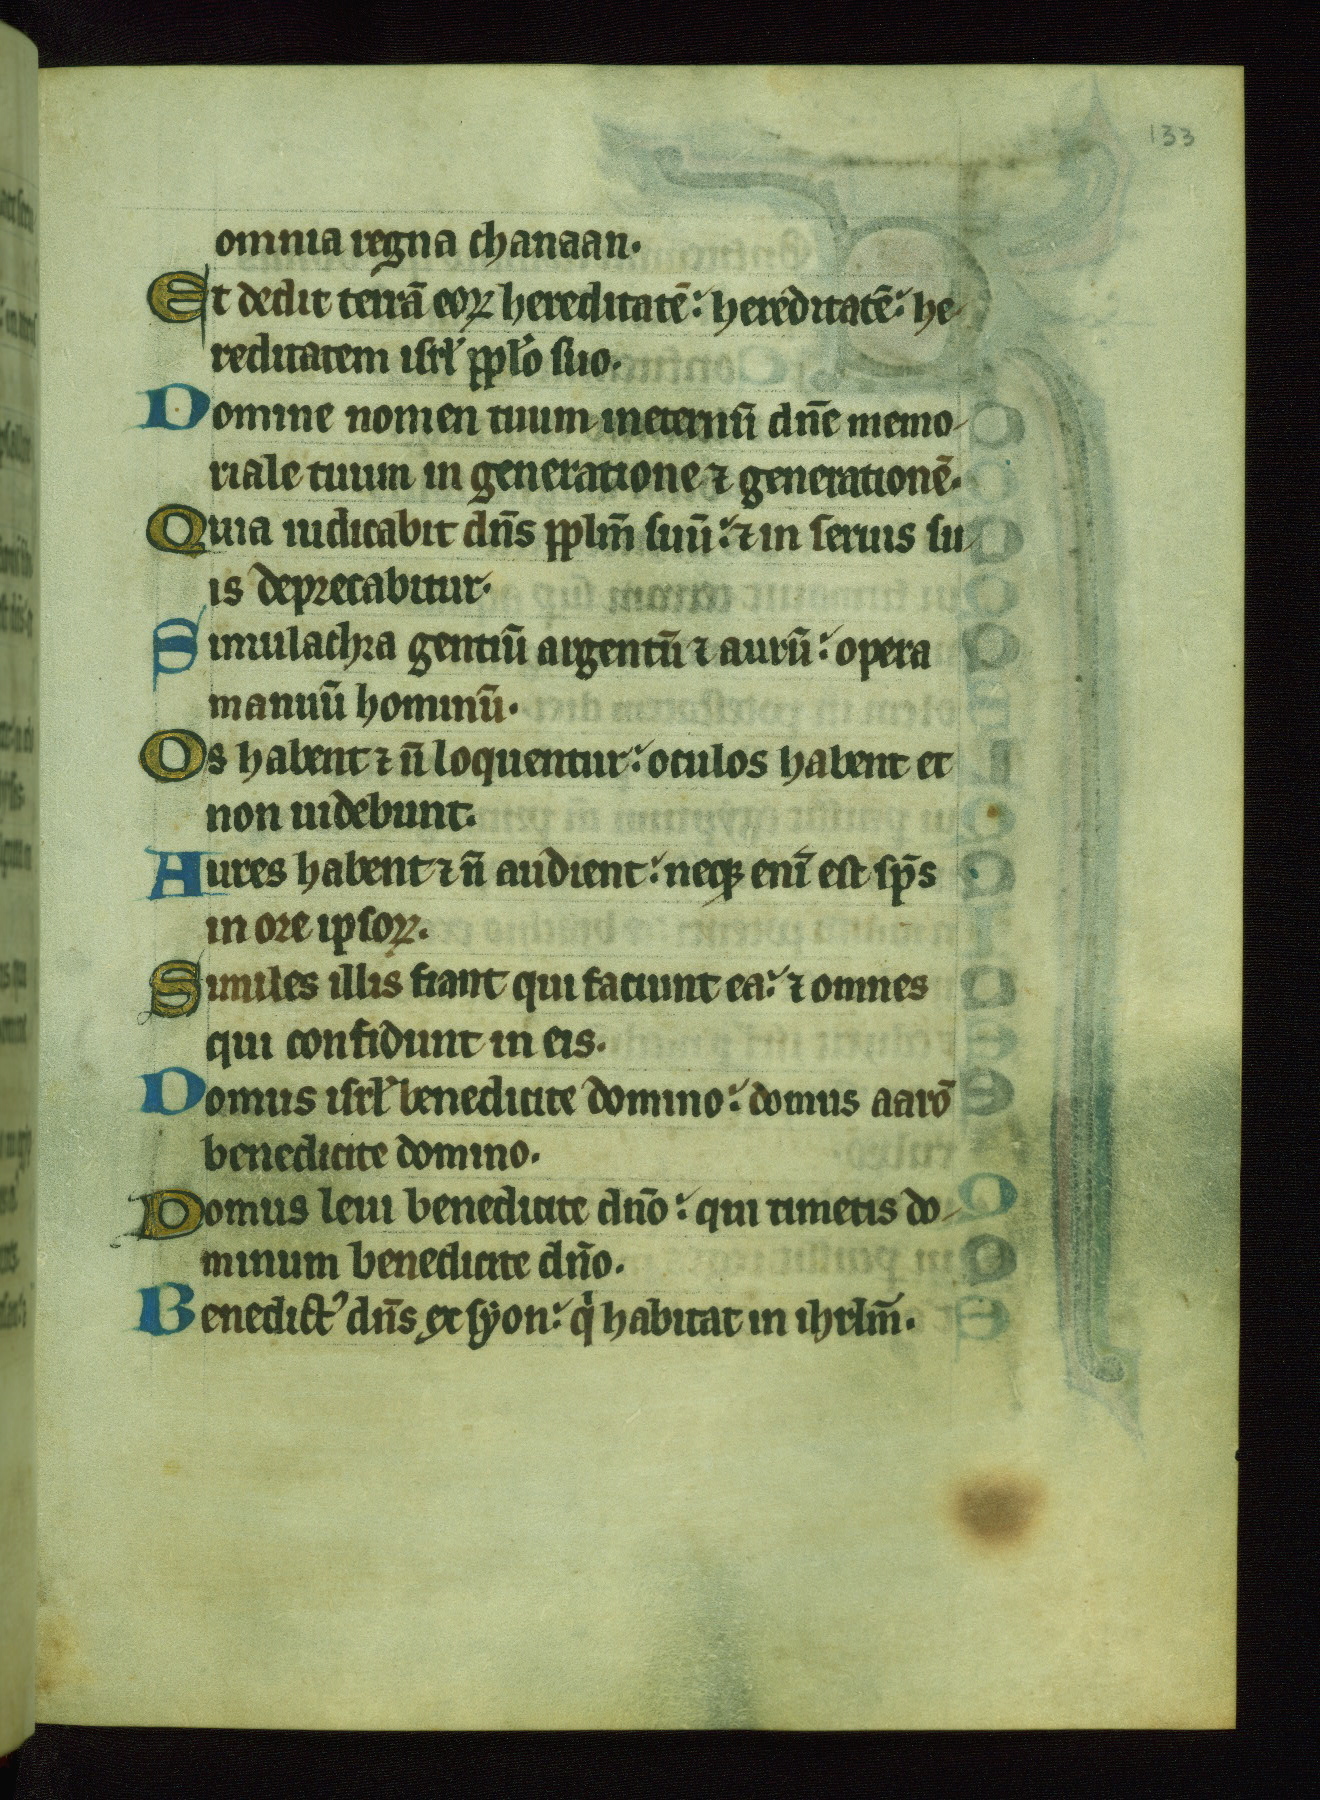 133
omnia regna chanaan.
Et dedit terrā eoꝝ hereditatē: hereditatē: he-
reditatem isrł ppło suo.
Domine nomen tuum ineternū dn̄e memo-
riale tuum in generatione ⁊ generationē.
Quia iudicabit dn̄s pplm̄ suū: ⁊ in seruis su-
is deprecabitur.
Simulachra gentiū argentū ⁊ aurū: opera
manuū hominū.
Os habent ⁊ n̄ loquentur: oculos habent et
non uidebunt.
Aures habent ⁊ n̄ audient: neqꝫ enī est sp̄s
in ore ipsoꝝ.
Similes illis fiant qui faciunt ea: ⁊ omnes
qui confidunt in eis.
Domus isrł benedicite domino: domus aarō
benedicite domino.
Domus leui benedicite dn̄o: qui timetis do-
minum benedicite dn̄o.
Benedictꝰ dn̄s ex syon: qͥ habitat in ihrłm̄.